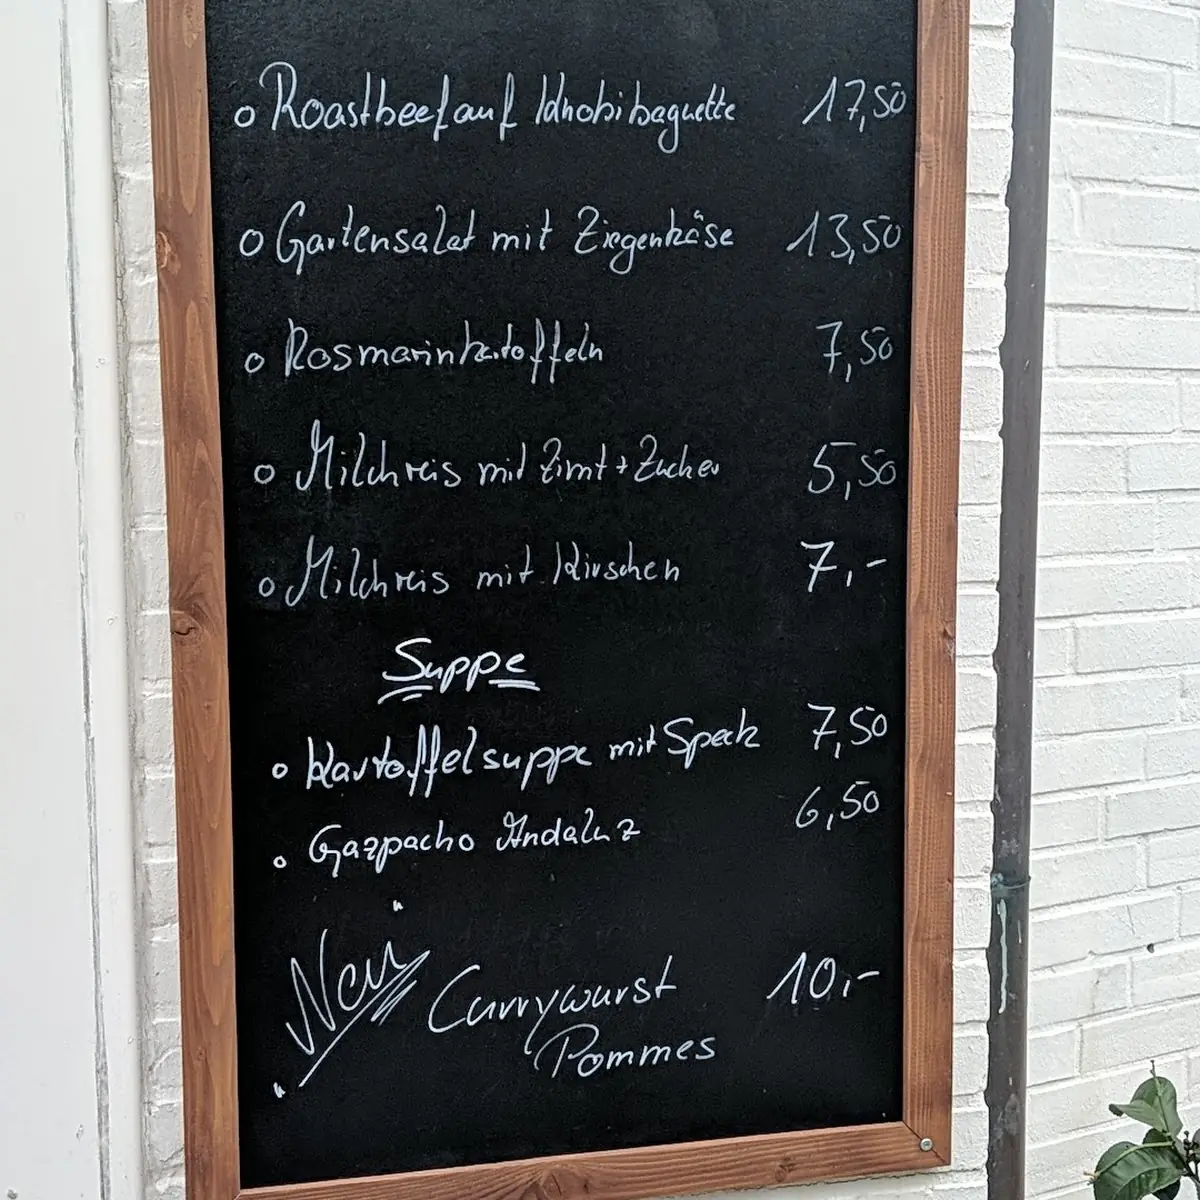 o Roastbeef auf Knobibaguette 17,50
o Gartensalat mit Ziegenkäse 13,50
o Rosmarinkartoffeln 7,50
o Milchreis mit Zimt + Zucker 5,50
o Milchreis mit Kirschen 7,-
Suppe
o Kartoffelsuppe mit Speck 7,50
o Gazpacho Andaluz 6,50
"Neu" Currywurst 10,-
Pommes